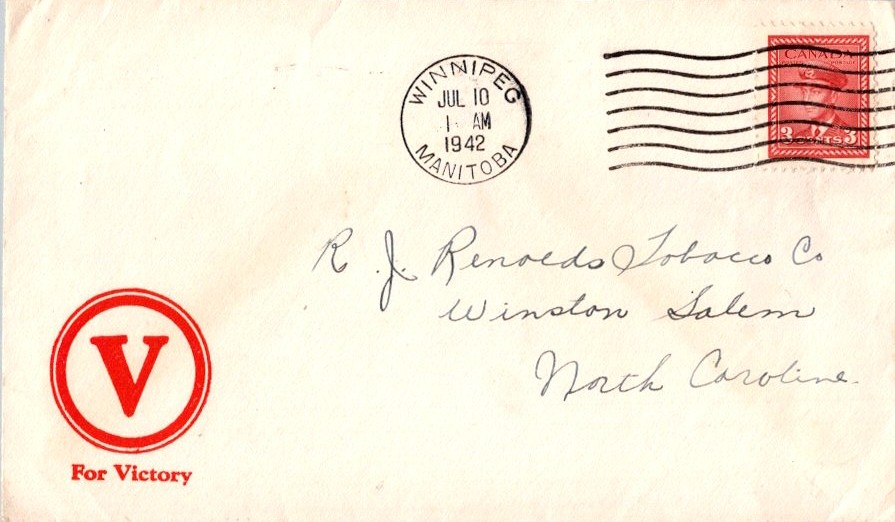 WINNIPEG
JUL 10
1 AM
1942
MANITOBA
CANADA
3 CENTS 3
R. J. Renolds Tobacco Co
Winston Salem
North Caroline
V
For Victory